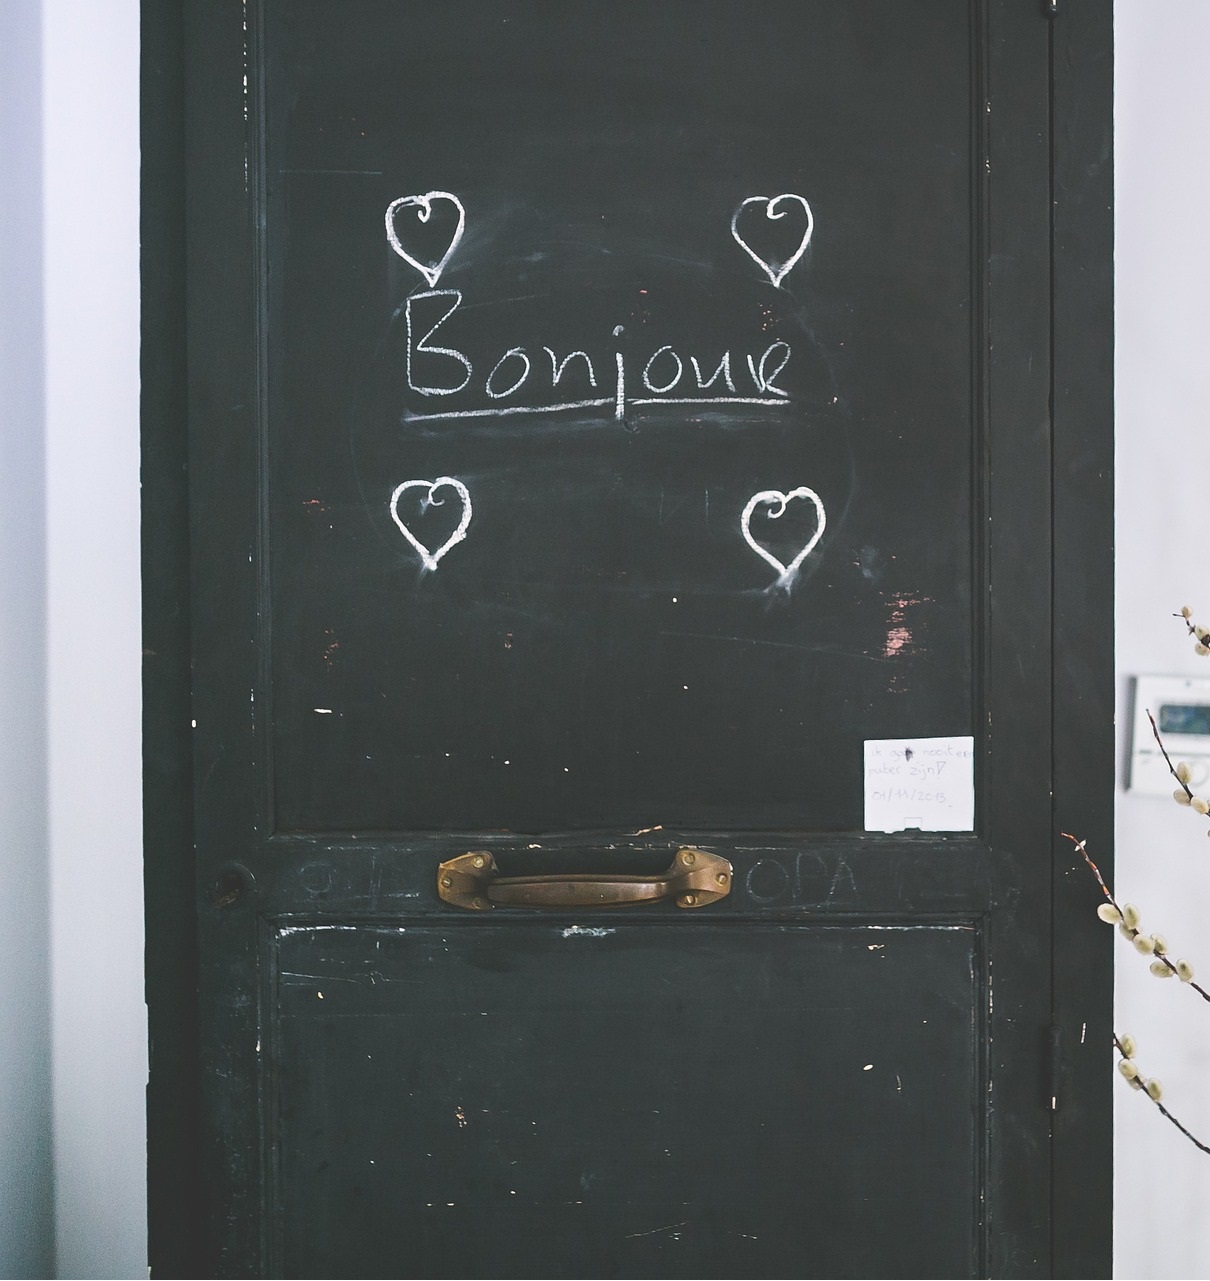 Bonjour
ik ga nooit een
puber zijn!
01/11/2013
OPA